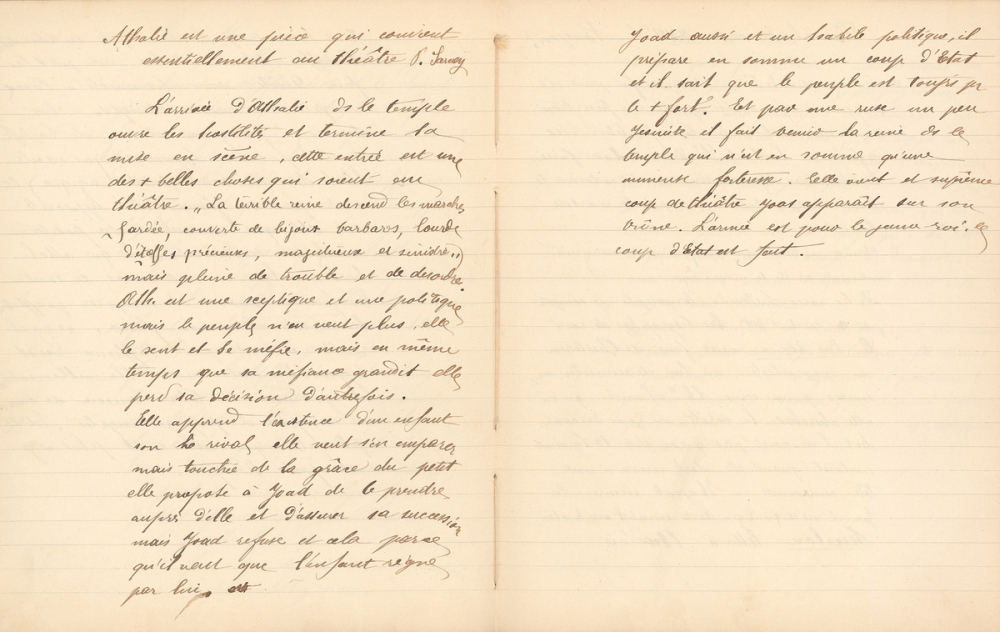 Athalie est une pièce qui convient
essentiellement au théâtre P. Sarcey
L'arrivée d'Athalie ds le temple
ouvre les hostilités et termine la
mise en scène, cette entrée est une
des + belles choses qui soient au
théâtre. „La terrible reine descend les marches,
fardée, couverte de bijoux barbares, lourde
d'étoffes précieuses, majestueuse et sinistre„
mais pleine de trouble et de desordre.
Ath. est une sceptique et une politique
mais le peuple n'en veut plus, elle
le sent et se méfie, mais en même
temps que sa méfiance grandit elle
perd sa décision d'autrefois.
Elle apprend l'existence d'un enfant
son rival elle veut s'en emparer
mais touchée de la grâce du petit
elle propose à Joad de le prendre
auprès d'elle et d'assurer sa succession
mais Joad refuse et cela parce
qu'il veut que l'enfant règne
par lui,
Joad aussi est un habile politique, il
prépare en somme un coup d'Etat
et il sait que le peuple est toujrs pr
le + fort. Et par une ruse un peu
Jesuite il fait venir la reine ds le
temple qui n'est en somme qu'une
immense forteresse. Elle vient et suprême
coup de théâtre Joas apparaît sur son
trône. L'armée est pour le jeune roi, le
coup d'Etat est fait.